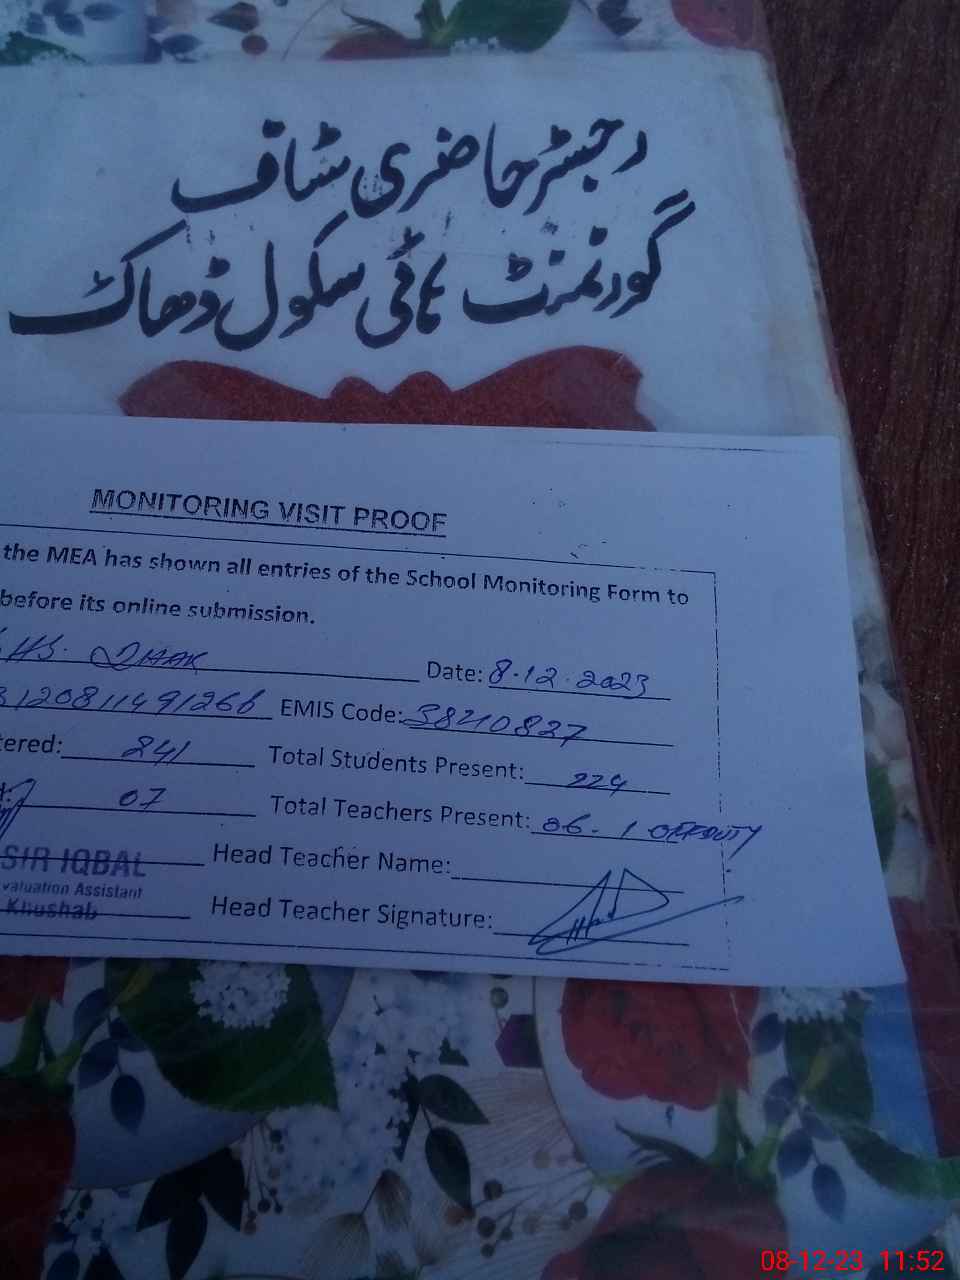 رجسٹر حاضری سٹاف
گورنمنٹ ہائی سکول ڈھاک
MONITORING VISIT PROOF
the MEA has shown all entries of the School Monitoring Form to
before its online submission.
HS. DHAK Date: 8.12.2023
3120811491266 EMIS Code: 38210827
tered: 241 Total Students Present: 224
07 Total Teachers Present: 06 - 1 OFFDUTY
SIR IQBAL Head Teacher Name:
valuation Assistant
Khushab Head Teacher Signature:
08-12-23 11:52